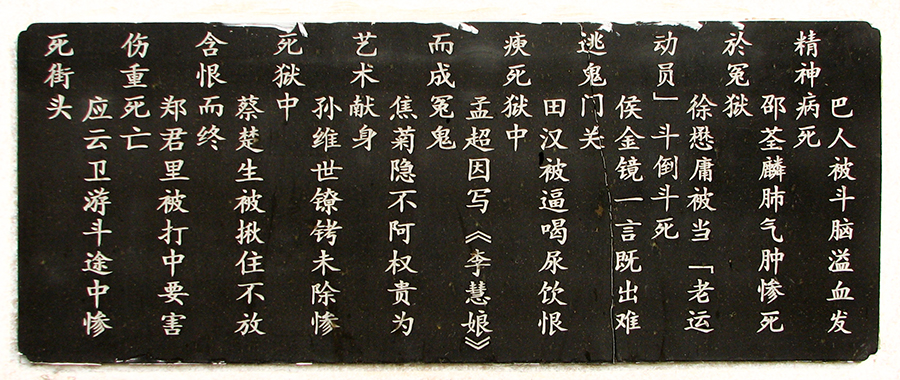 巴人被斗脑溢血发
精神病死
邵荃麟肺气肿惨死
於冤狱
徐懋庸被当「老运
动员」斗倒斗死
侯金镜一言既出难
逃鬼门关
田汉被逼喝尿饮恨
瘐死狱中
孟超因写《李慧娘》
而成冤鬼
焦菊隐不阿权贵为
艺术献身
孙维世镣铐未除惨
死狱中
蔡楚生被揪住不放
含恨而终
郑君里被打中要害
伤重死亡
应云卫游斗途中惨
死街头